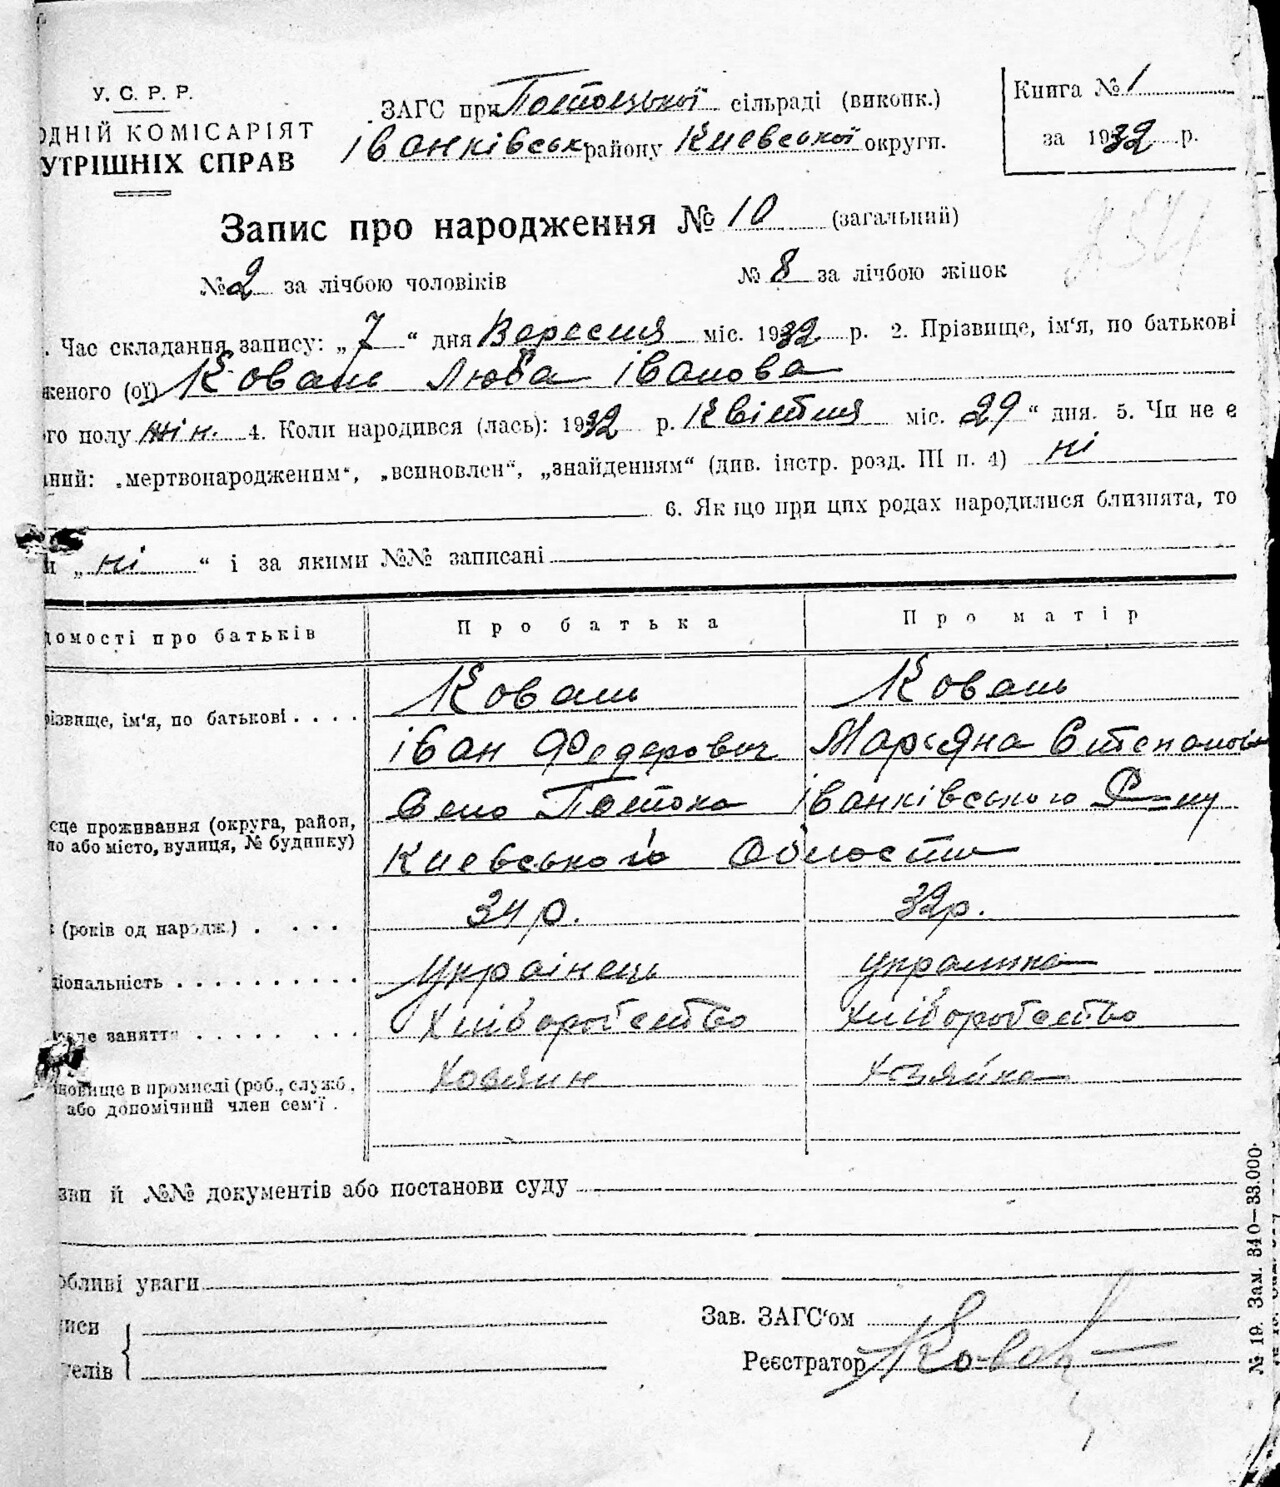 У. С. Р. Р.
ОДНІЙ КОМІСАРІЯТ
УТРІШНІХ СПРАВ
ЗАГС при Потоцької сільраді (виконк.)
Іванківськ району Києвської округи.
Книга № 1
за 1932 р.
Запис про народження № 10 (загальний)
№ 2 за лічбою чоловіків № 8 за лічбою жінок
. Час складання запису: „7“ дня Вересня міс. 1932 р. 2. Прізвище, ім'я, по батькові
женого (ої) Коваль Люба Іванова
го полу жін. 4. Коли народився (лась): 1932 р. Квітня міс. 29“ дня. 5. Чи не є
аний: „мертвонародженим“, „всиновлен“, „знайденням“ (див. інстр. розд. III п. 4) ні
6. Якщо при цих родах народилися близнята, то
и „ні“ і за якими №№ записані
домості про батьків Про батька Про матір
Коваль Коваль
різвище, ім'я, по батькові . . . .
Іван Федерович Мар'яна Степанов
Село Потока Іванківського Р-ну
сце проживання (округа, район,
ло або місто, вулиця, № будинку)
Києвського Області
к (років од народж.) . . . . 34 р. 32 р.
ціональність . . . . . . . . . . Українець украинка
заняття . . . . . . . . Хліборобство хліборобство
новище в промислі (роб., служб., Хозяин хозяйка
або допомічний член сем'ї .
зви й №№ документів або постанови суду
обливі уваги
писи
телів
Зав. ЗАГС'ом
Реєстратор Ковал
№ 19. Зам. 340—33.000